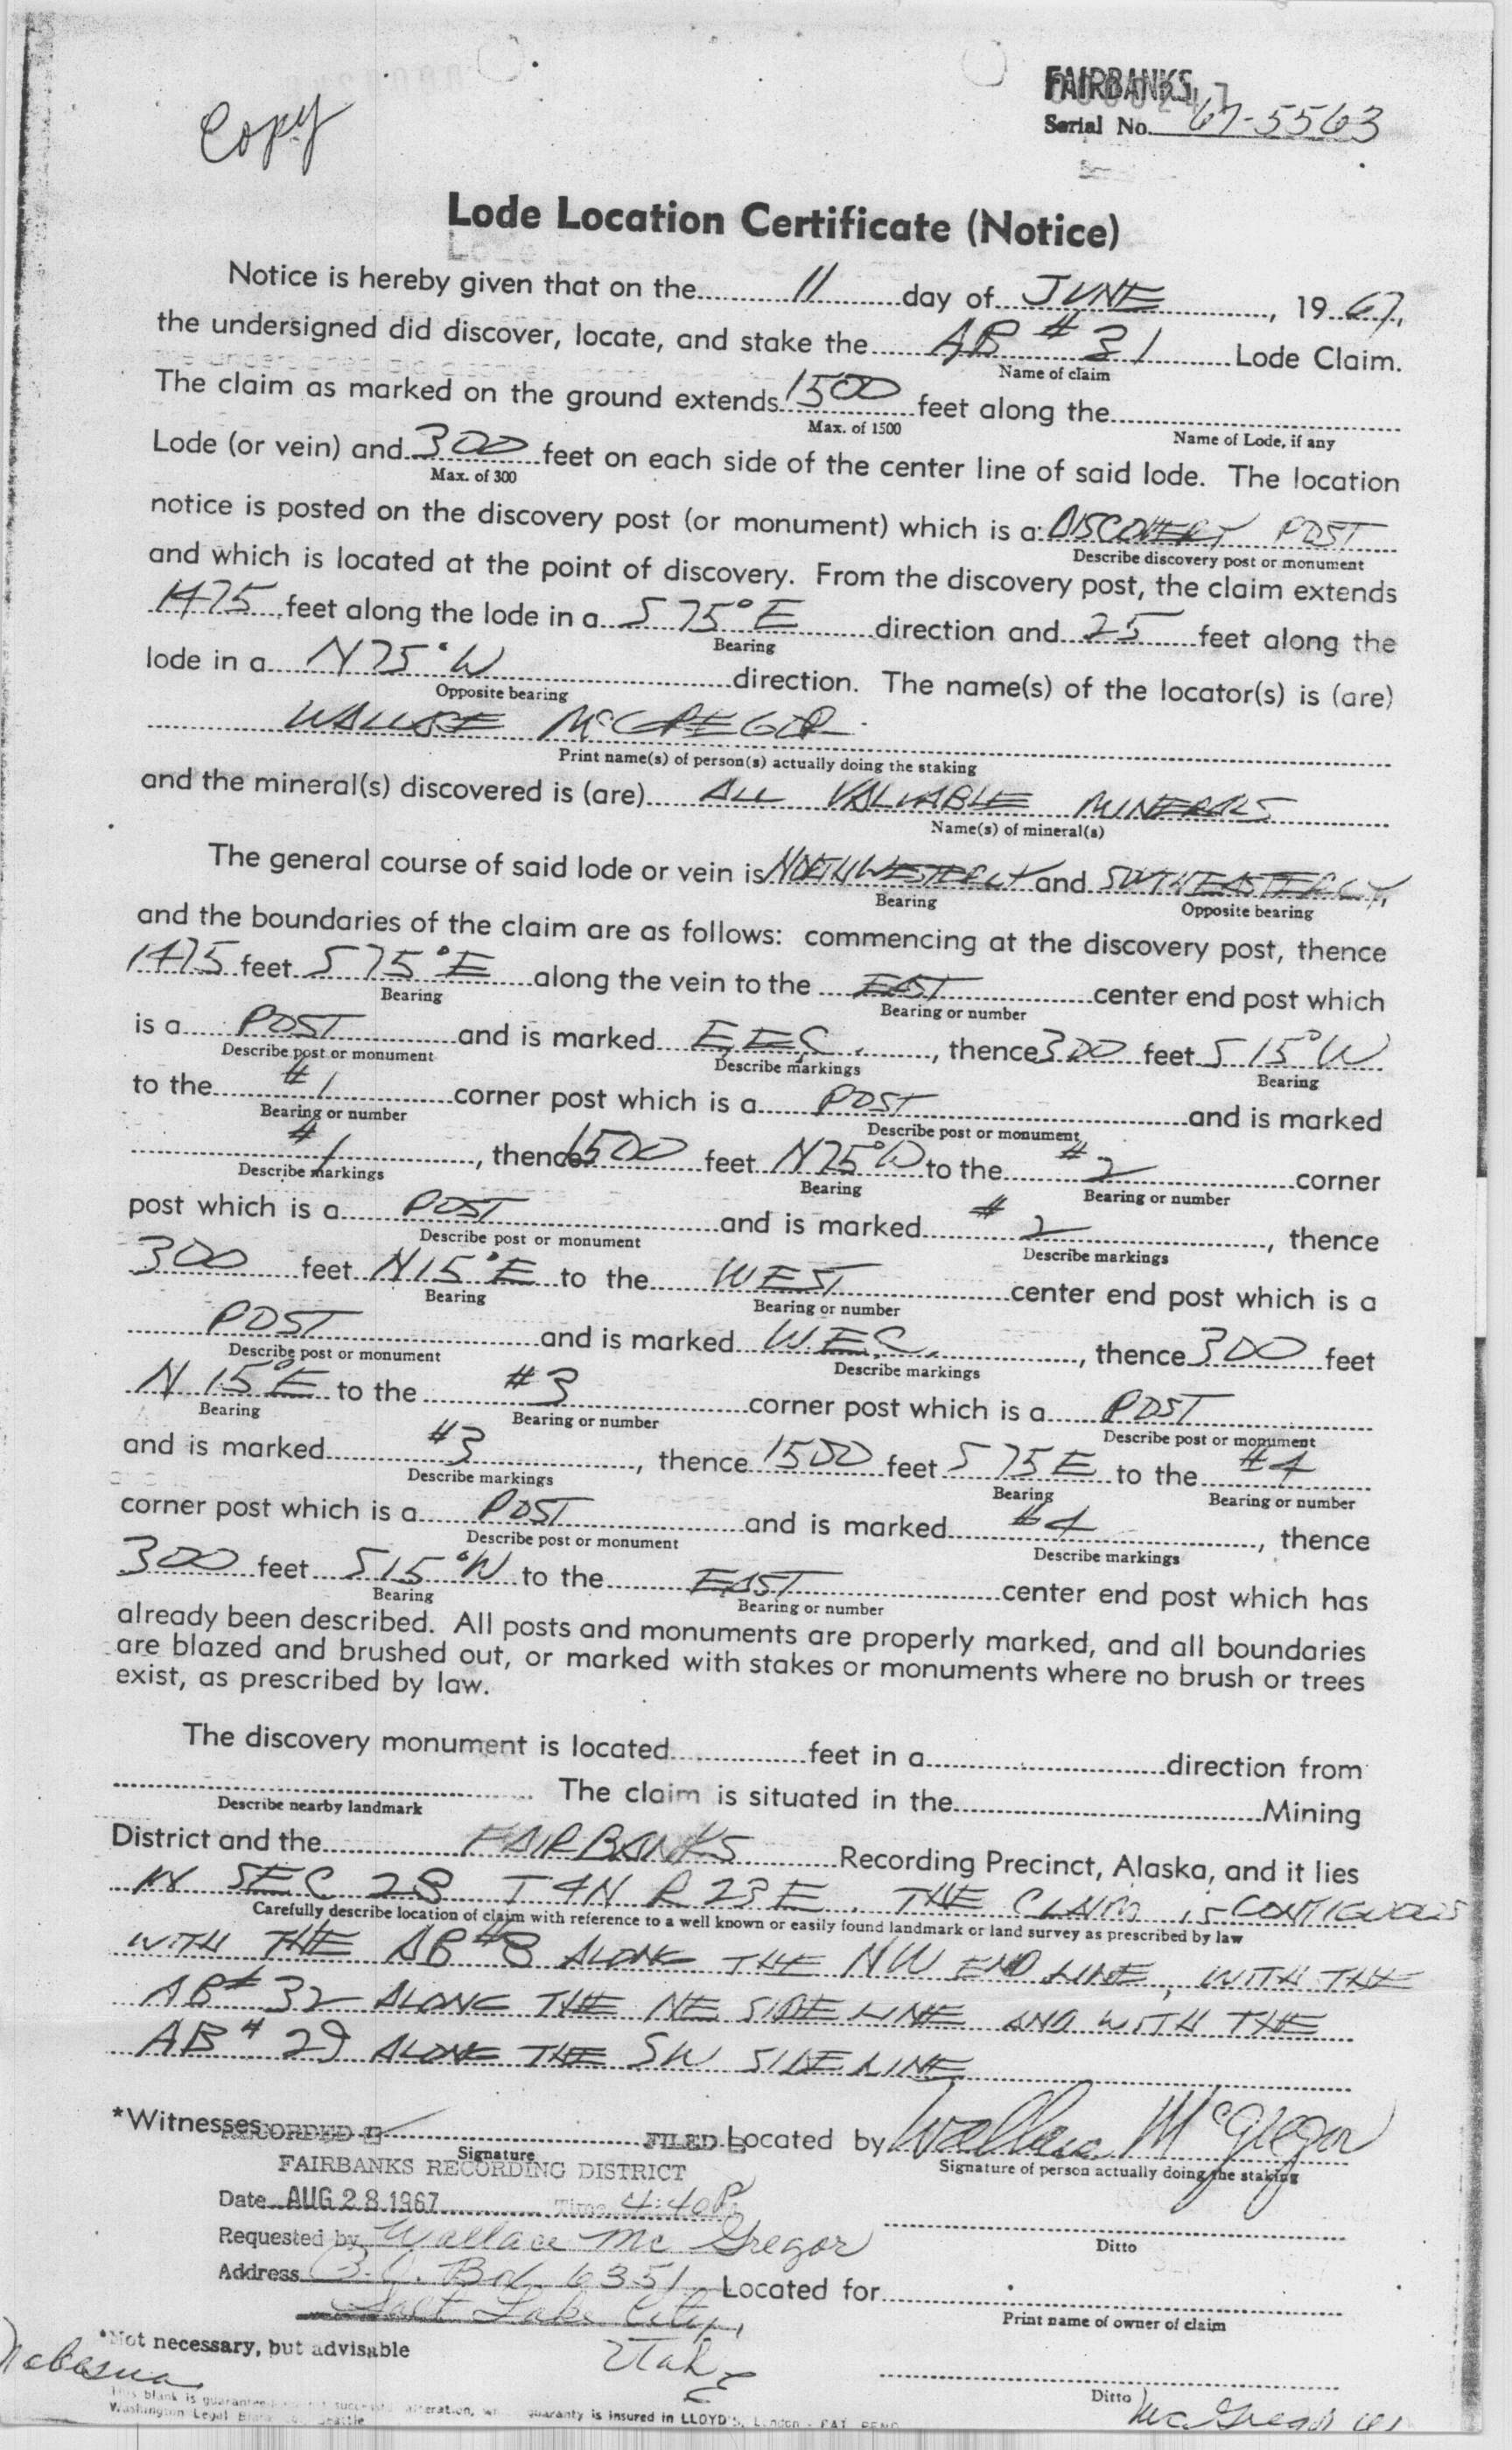 Copy
FAIRBANKS
Serial No. 67-5563
Lode Location Certificate (Notice)
Notice is hereby given that on the 11 day of JUNE, 1967,
the undersigned did discover, locate, and stake the AB #31 Lode Claim.
Name of claim
The claim as marked on the ground extends 1500 feet along the
Max. of 1500 Name of Lode, if any
Lode (or vein) and 300 feet on each side of the center line of said lode. The location
Max. of 300
notice is posted on the discovery post (or monument) which is a: DISCOVERY POST
Describe discovery post or monument
and which is located at the point of discovery. From the discovery post, the claim extends
1475 feet along the lode in a S 75° E direction and 25 feet along the
Bearing
lode in a N75°W direction. The name(s) of the locator(s) is (are)
Opposite bearing
WALLACE McGREGOR
Print name(s) of person(s) actually doing the staking
and the mineral(s) discovered is (are) ALL VALUABLE MINERALS
Name(s) of mineral(s)
The general course of said lode or vein is NORTHWESTERLY and SOUTHEASTERLY,
Bearing Opposite bearing
and the boundaries of the claim are as follows: commencing at the discovery post, thence
1475 feet S 75°E along the vein to the EAST center end post which
Bearing Bearing or number
is a POST and is marked E.E.C., thence 300 feet S 15°W
Describe post or monument Describe markings Bearing
to the #1 corner post which is a POST and is marked
Bearing or number Describe post or monument
#1, thence 1500 feet N75°W to the #2 corner
Describe markings Bearing Bearing or number
post which is a POST and is marked #2, thence
Describe post or monument Describe markings
300 feet N15°E to the WEST center end post which is a
Bearing Bearing or number
POST and is marked W.E.C., thence 300 feet
Describe post or monument Describe markings
N 15°E to the #3 corner post which is a POST
Bearing Bearing or number Describe post or monument
and is marked #3, thence 1500 feet S 75 E to the #4
Describe markings Bearing Bearing or number
corner post which is a POST and is marked #4, thence
Describe post or monument Describe markings
300 feet S15°W to the EAST center end post which has
Bearing Bearing or number
already been described. All posts and monuments are properly marked, and all boundaries
are blazed and brushed out, or marked with stakes or monuments where no brush or trees
exist, as prescribed by law.
The discovery monument is located feet in a direction from
. The claim is situated in the Mining
Describe nearby landmark
District and the FAIRBANKS Recording Precinct, Alaska, and it lies
IN SEC 28 T4N R23E. THE CLAIM IS CONTIGUOUS
Carefully describe location of claim with reference to a well known or easily found landmark or land survey as prescribed by law
WITH THE AB#8 ALONG THE NW END LINE, WITH THE
AB#32 ALONG THE NE SIDE LINE AND WITH THE
AB#29 ALONG THE SW SIDELINE
*Witnesses RECORDED FILED Located by Wallace McGregor
Signature Signature of person actually doing the staking
FAIRBANKS RECORDING DISTRICT
Date AUG 28 1967 Time 4:40P
Requested by Wallace McGregor
Ditto
Address Box 6351 Located for
Salt Lake City,
Print name of owner of claim
Utah
*Not necessary, but advisable
Nabesna
Ditto
McGregor
This blank is guaranteed alteration, guaranty is insured in LLOYD'S, London - PAT. PEND
Washington Legal Seattle